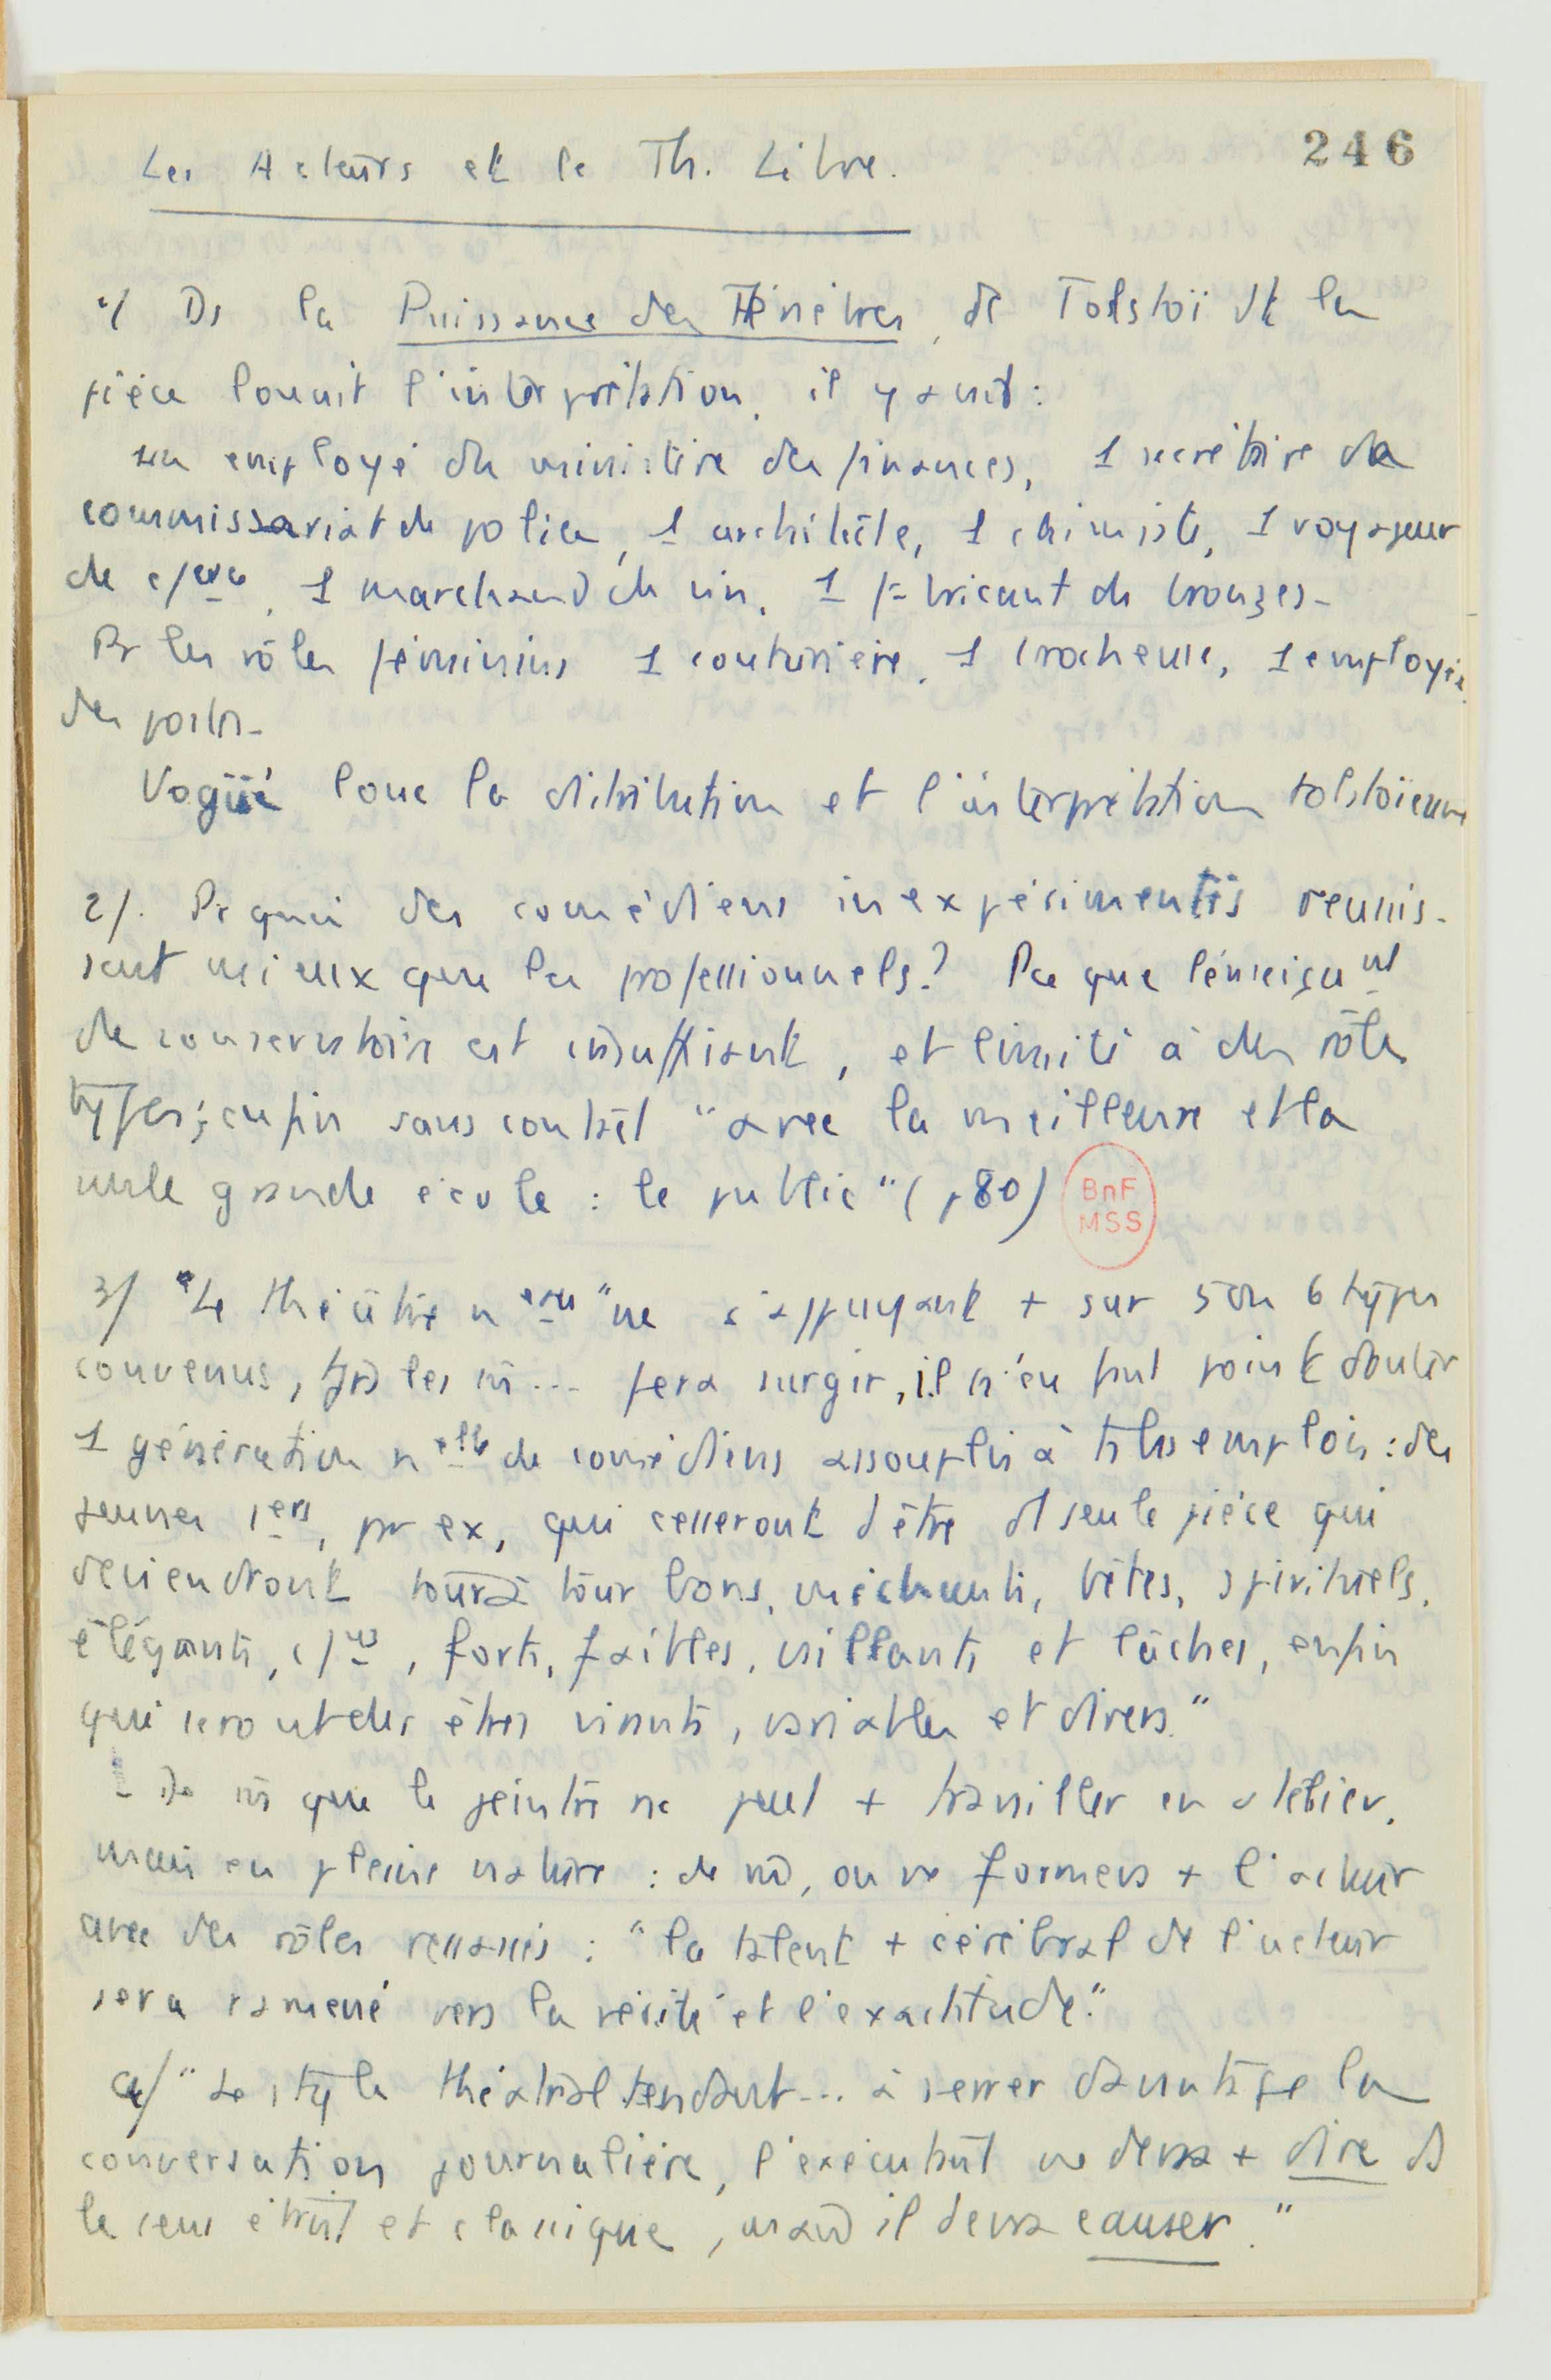 Les Acteurs et le Th. Libre.
246
1/ Ds la Puissance des Ténèbres, de Tolstoï dt la
pièce louait l'interprétation, il y avait :
un employé du ministère des finances, 1 secrétaire de
commissariat de police, 1 architecte, 1 chimiste, 1 voyageur
de c/erce, 1 marchand de vin, 1 fabricant de bronzes -
Pr les rôles féminins 1 couturière, 1 brocheuse, 1 employée
des postes -
Vogüé loue la distribution et l'interprétation tolstoïenne
2/. Pr quoi des comédiens inexpérimentés réunis-
sent mieux que les professionnels ? Pce que l'enseignt
de conservatoire est insuffisant, et limité à des rôles
types ; enfin sans contact "avec la meilleure et la
seule grande école : le public" (p80)
BnF
MSS
3/ "Le théâtre nveau "ne s'appuyant + sur 5 ou 6 types
convenus, tjrs les m̂... fera surgir, il n'en faut point douter
1 génération nelle de comédiens assouplis à ts les emplois : des
jeunes 1ers, pr ex, qui cesseront d'être d'1 seule pièce qui
deviendront tour à tour bons, méchants, bêtes, spirituels,
élégants, c/uns, forts, faibles, vaillants et lâches, enfin
qui seront des êtres vivants, variables et divers."
- De m̂ que le peintre ne peut + travailler en atelier,
mais en pleine nature : de m̂, on ne formera + l'acteur
avec des rôles ressassés : "le talent + cérébral de l'acteur
sera ramené vers la vérité et l'exactitude."
4/ "Le style théâtral tendant... à serrer davantage la
conversation journalière, l'exécutant ne devra + dire ds
le sens étroit et classique, mais il devra causer."